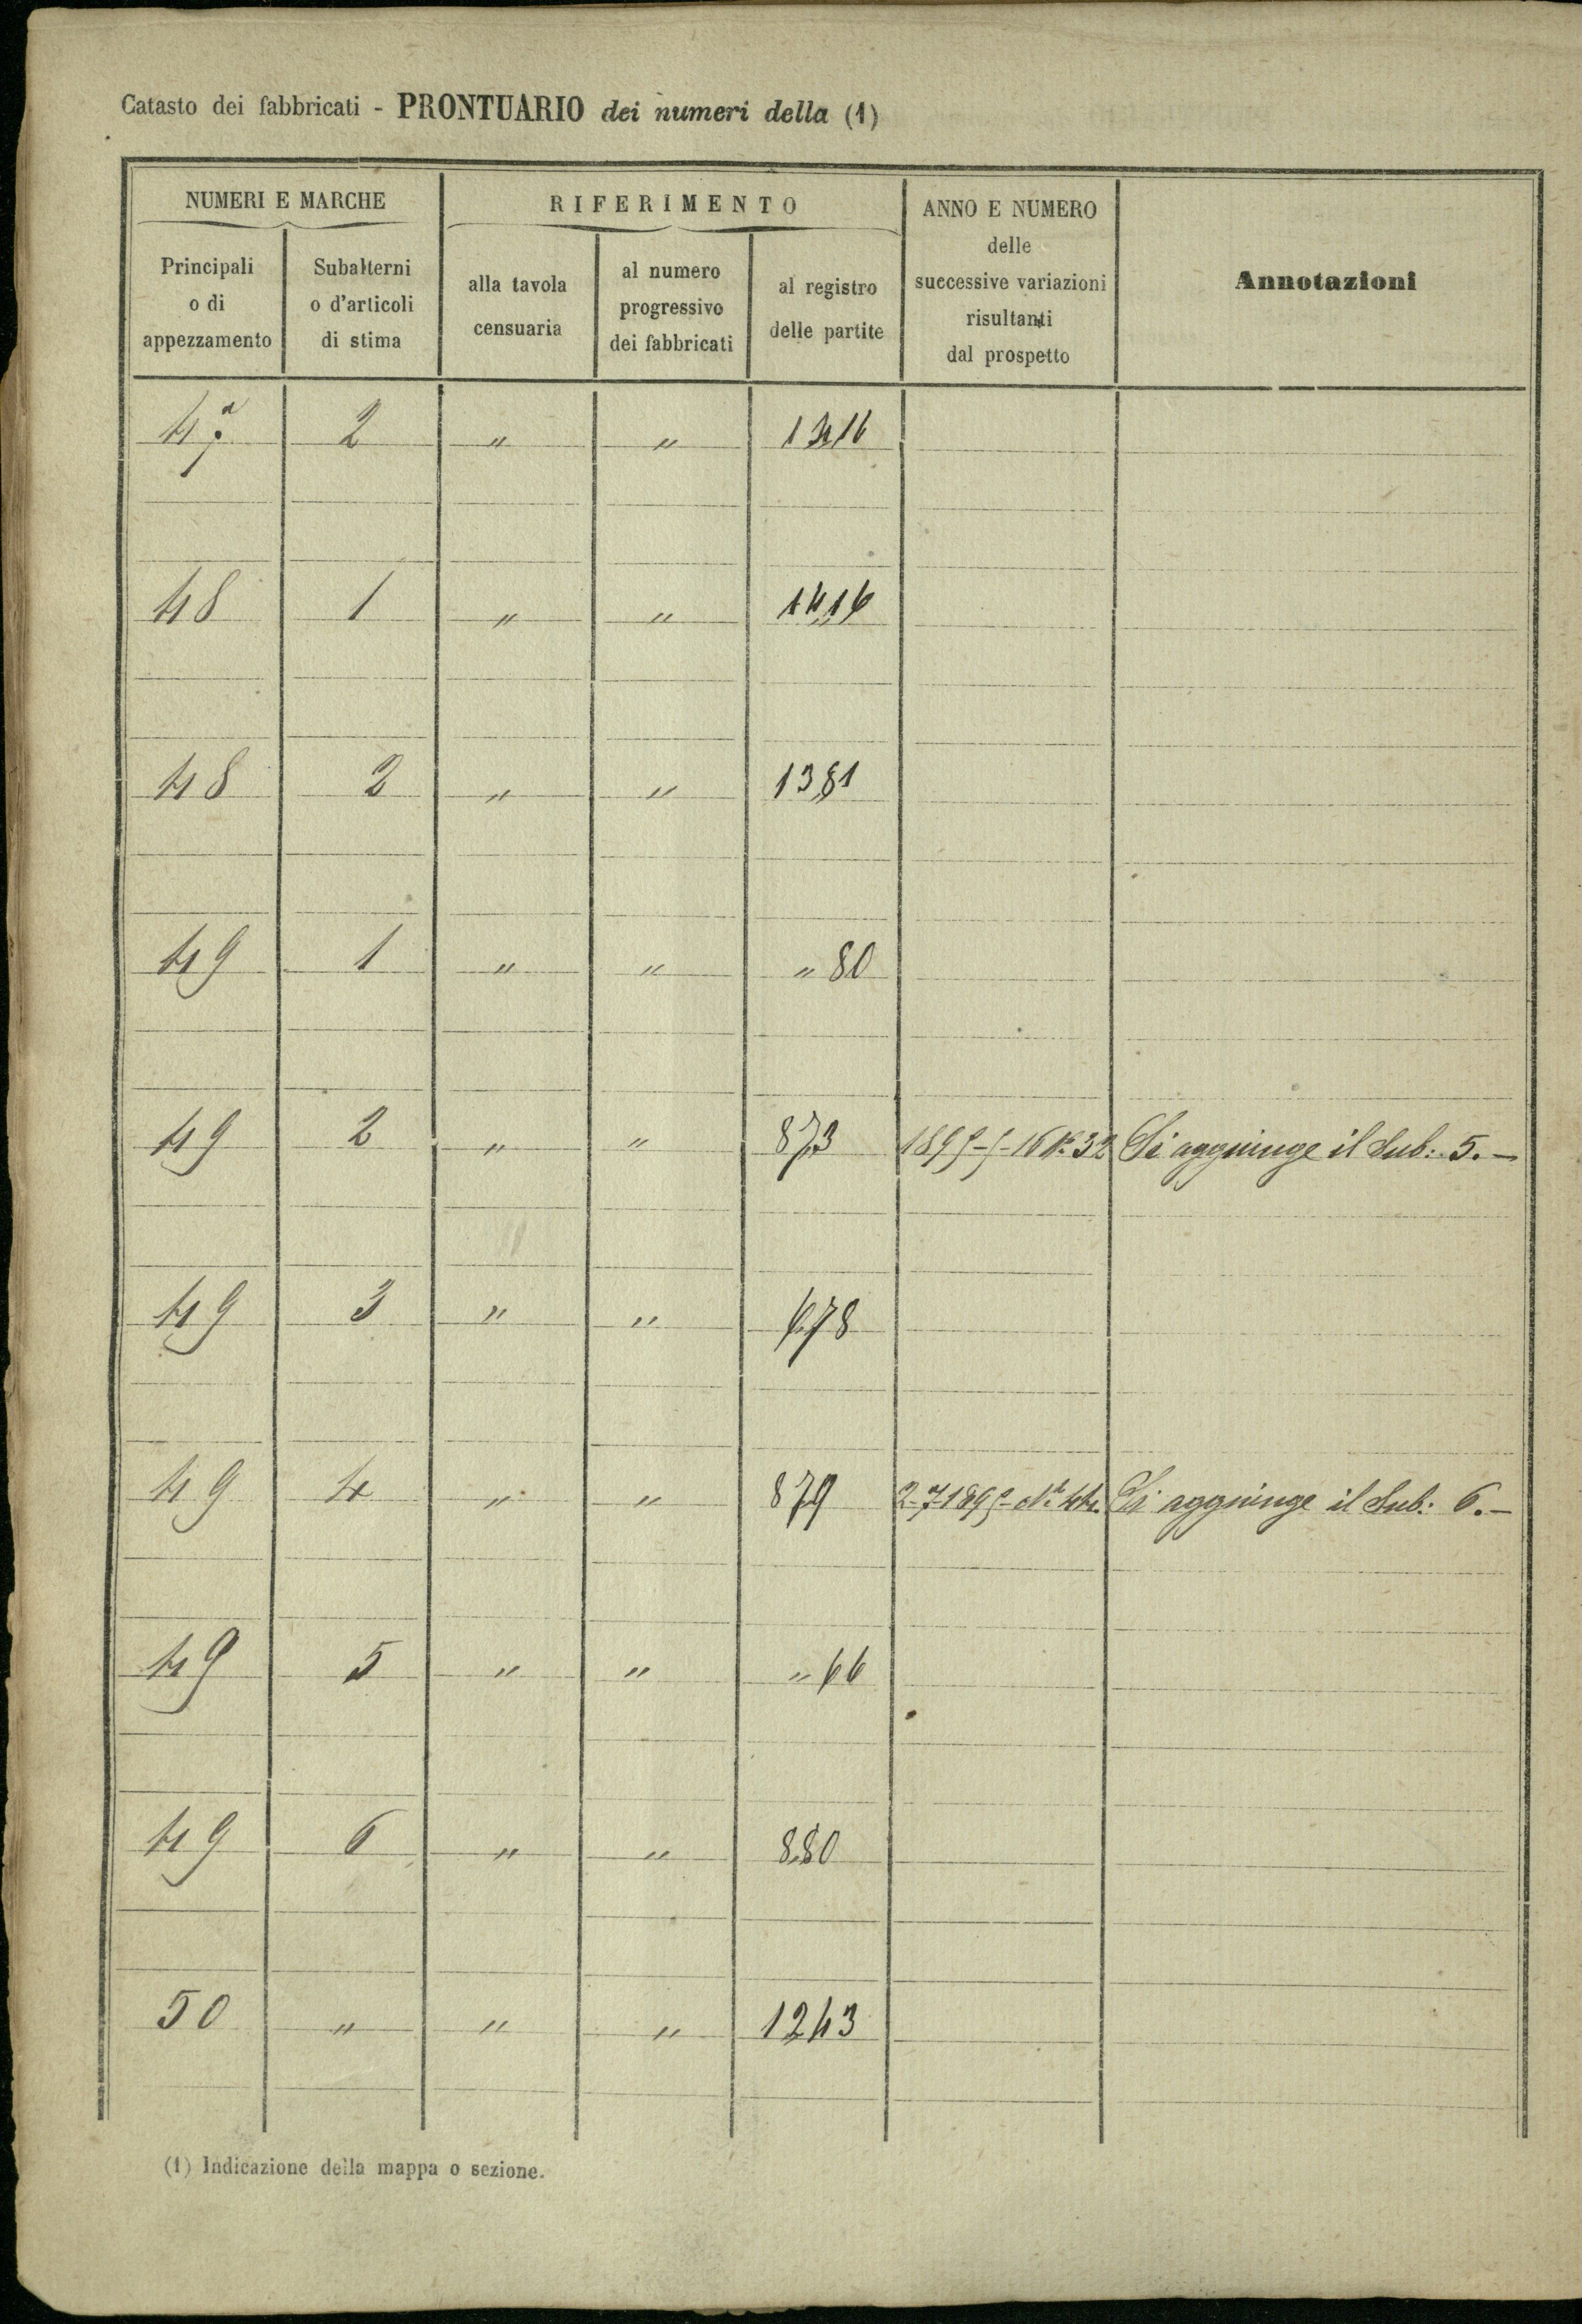 Catasto dei fabbricati - PRONTUARIO dei numeri della (1)
NUMERI E MARCHE
Principali
o di
appezzamento
Subalterni
o d'articoli
di stima
RIFERIMENTO
alla tavola
censuaria
al numero
progressivo
dei fabbricati
al registro
delle partite
ANNO E NUMERO
delle
successive variazioni
risultanti
dal prospetto
Annotazioni
47 2 " "
48 1 " " 1416
48 2 " " 1381
49 1 " " " 80
49 2 " " 873 Si aggiunge il Sub: 5. -
49 3 " " 678
49 4 " " 879 Si aggiunge il Sub: 6. -
49 5 " " " 66
49 6 " " 880
50 " " " 1243
(1) Indicazione della mappa o sezione.